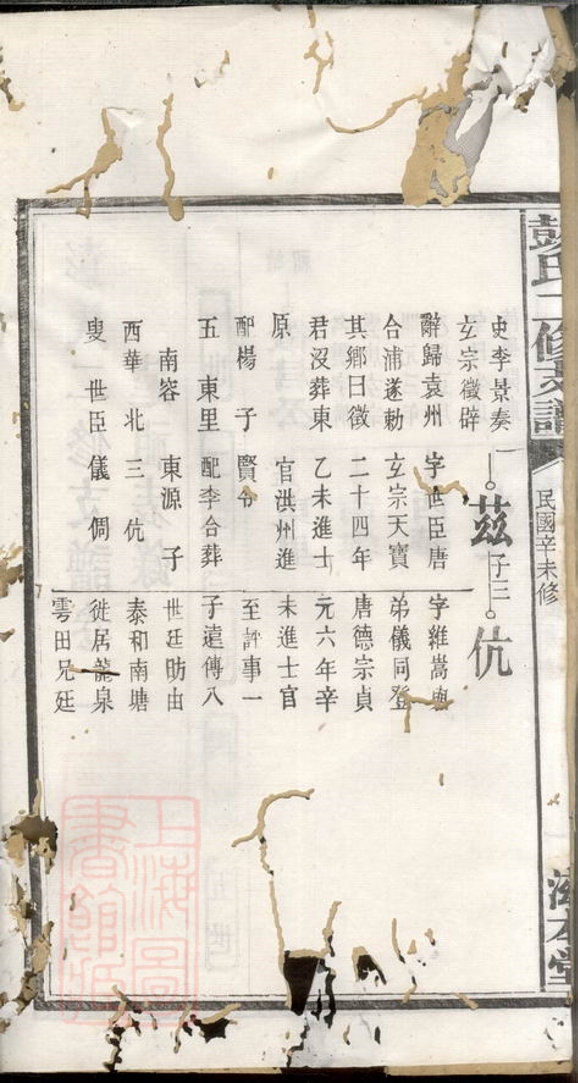 彭氏二修支譜
民國辛未修
史李景奏
玄宗徵辟
辭歸袁州
合浦遂勅
其鄉曰徵
君沒葬東
原
配楊 子
五 東里
南容
西華 北
叟 世臣
茲 子三
字世臣唐
玄宗天寶
二十四年
乙未進士
官洪州進
賢令
配李合葬
東源 子
三 伉
儀 倜
伉
字維嵩與
弟儀同登
唐德宗貞
元六年辛
未進士官
至評事一
子遠傳八
世廷昉由
泰和南塘
徙居龍泉
雩田兄廷
上海圖書館藏